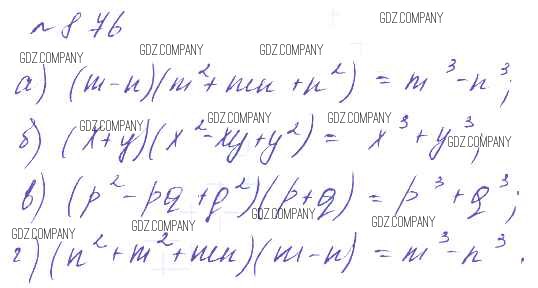 № 876
GDZ.COMPANY
GDZ.COMPANY GDZ.COMPANY GDZ.COMPANY
а) (m-n)(m²+mn+n²) = m³-n³;
GDZ.COMPANY GDZ.COMPANY GDZ.COMPANY
б) (x+y)(x²-xy+y²) = x³+y³;
GDZ.COMPANY
в) (p²-pq+q²)(p+q) = p³+q³;
GDZ.COMPANY GDZ.COMPANY GDZ.COMPANY GDZ.COMPANY
г) (n²+m²+mn)(m-n) = m³-n³.